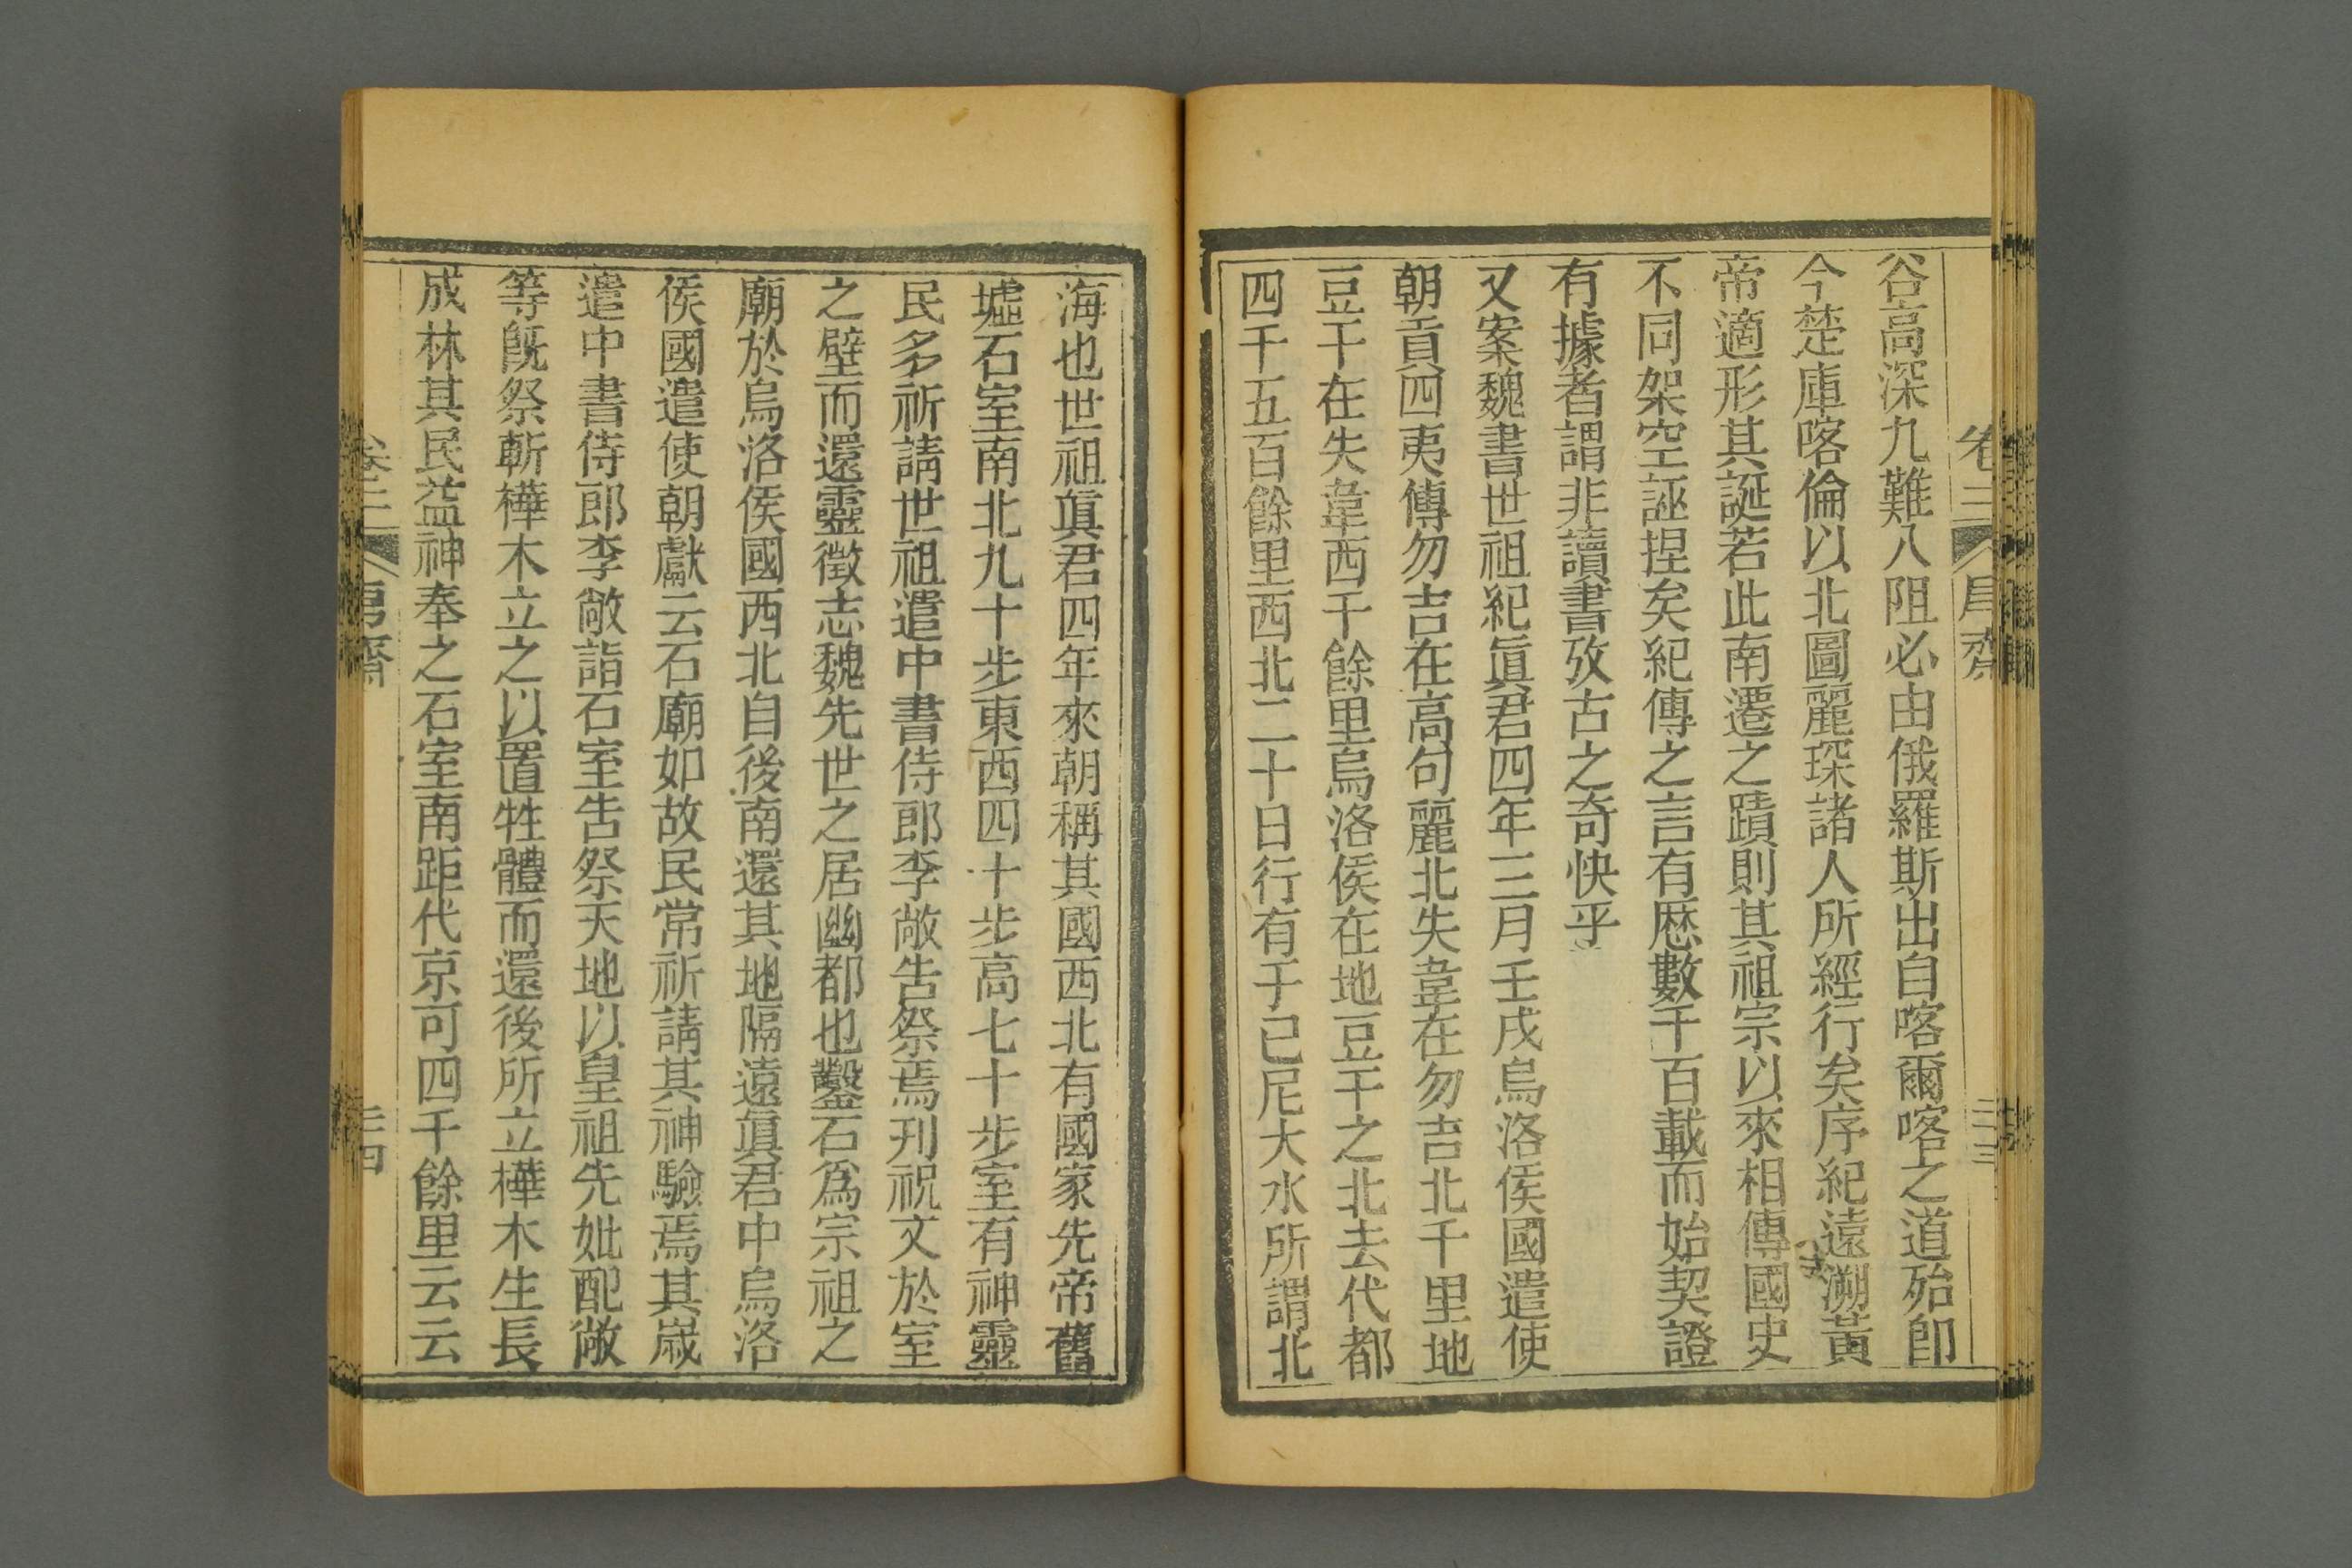 谷高深九難八阻必由俄羅斯出自喀爾喀之道殆卽
今楚庫喀倫以北圖麗琛諸人所經行矣序紀遠溯黃
帝適形其誕若此南遷之蹟則其祖宗以來相傳國史
不同架空誣捏矣紀傳之言有厯數千百載而始契證
有據者謂非讀書攷古之奇快乎
又案魏書世祖紀眞君四年三月壬戌烏洛侯國遣使
朝貢四夷傳勿吉在高句麗北失韋在勿吉北千里地
豆干在失韋西千餘里烏洛侯在地豆干之北去代都
四千五百餘里西北二十日行有于巳尼大水所謂北
海也世祖眞君四年來朝稱其國西北有國家先帝舊
墟石室南北九十步東西四十步高七十步室有神靈
民多祈請世祖遣中書侍郎李敞告祭焉刋祝文於室
之壁而還靈徵志魏先世之居幽都也鑿石爲宗祖之
廟於烏洛侯國西北自後南還其地隔遠眞君中烏洛
侯國遣使朝獻云石廟如故民常祈請其神驗焉其嵗
遣中書侍郎李敞詣石室告祭天地以皇祖先妣配敞
等旣祭斬樺木立之以置牲體而還後所立樺木生長
成林其民益神奉之石室南距代京可四千餘里云云
卷三